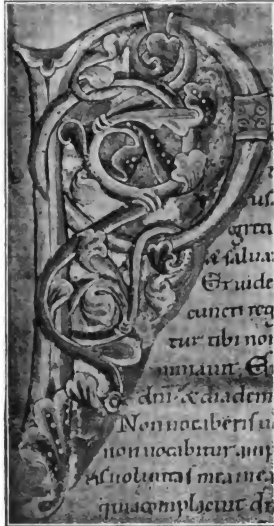 us.
& salua
Et uide
cuncti reg
tur tibi nom
minauit. Et
dni. & diadem
Non uocaberis u
non uocabitur amp
ris uoluntas mea in ea
quia complacuit d